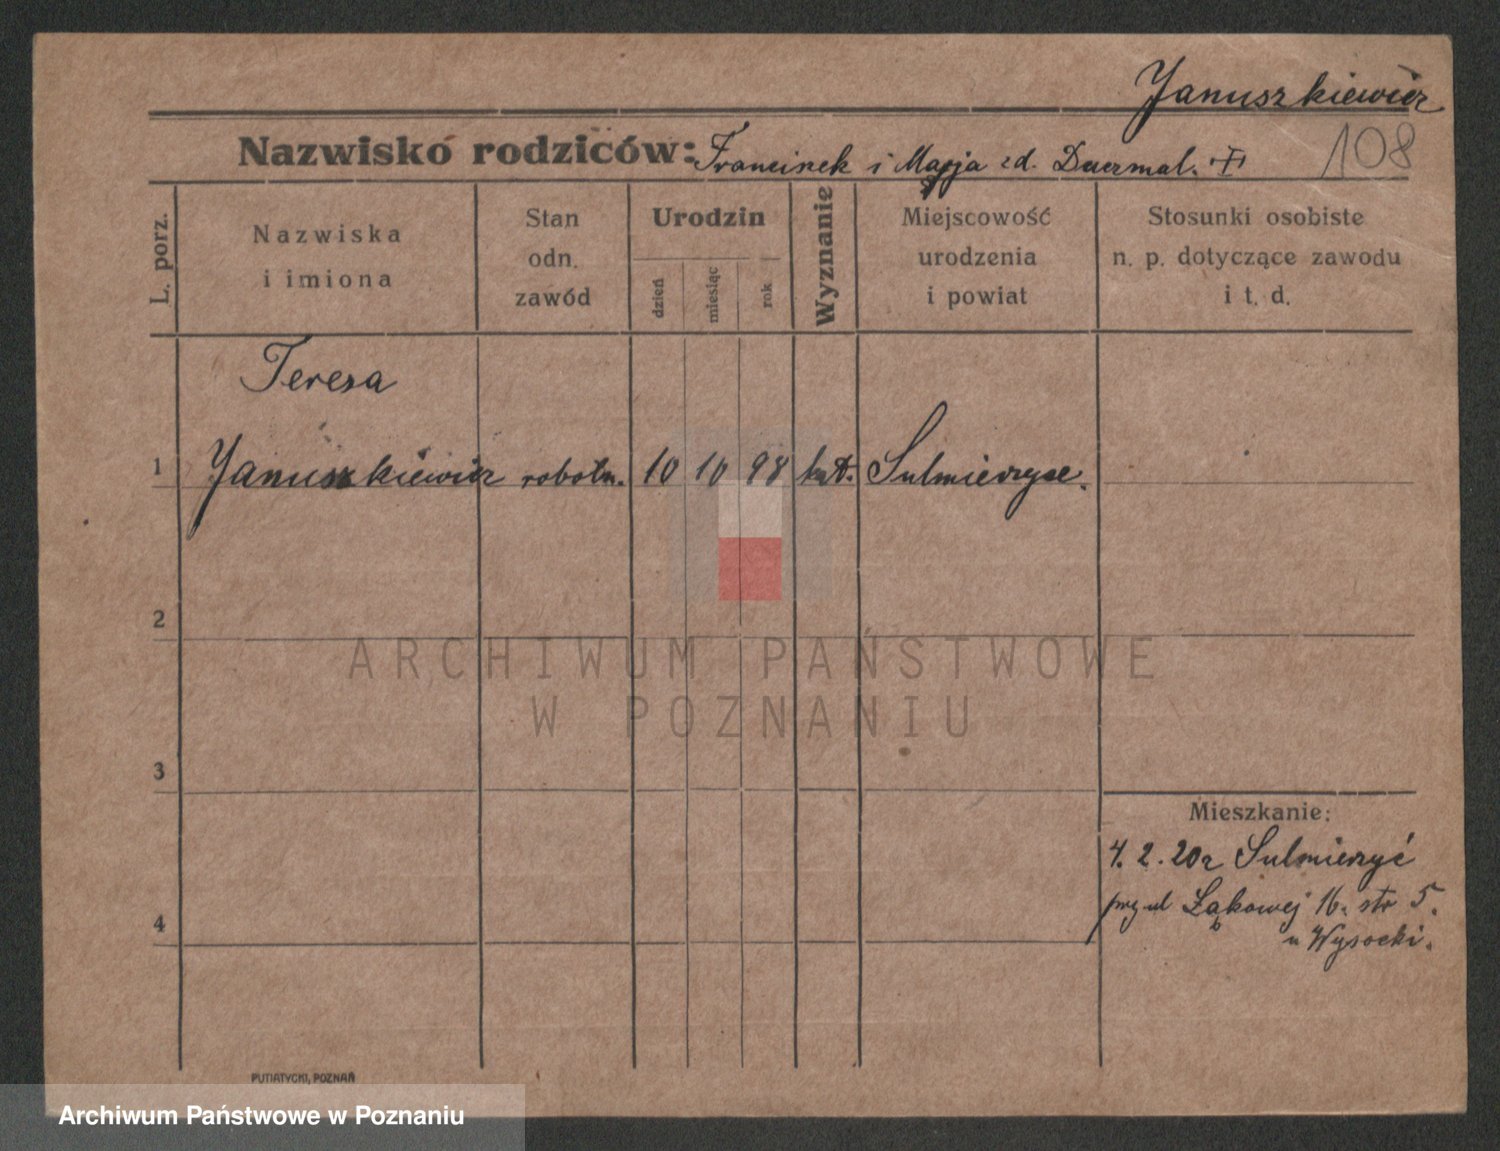 Januszkiewicz
108
Nazwisko rodziców: Franciszek i Marja zd.
L. porz.
Nazwiska
i imiona
Stan
odn.
zawód
Urodzin
dzień
miesiąc
rok
Wyznanie
Miejscowość
urodzenia
i powiat
Stosunki osobiste
n. p. dotyczące zawodu
i t. d.
Teresa
1 Januszkiewicz robotn. 10 10 98 kat. Sulmierzyce.
2
3
4
Mieszkanie:
4. 2. 20 z Sulmierzyć
przy ul Łąkowej 16. str 5.
u Wysocki.
PUTIATYCKI, POZNAŃ
ARCHIWUM PAŃSTWOWE
W POZNANIU
Archiwum Państwowe w Poznaniu